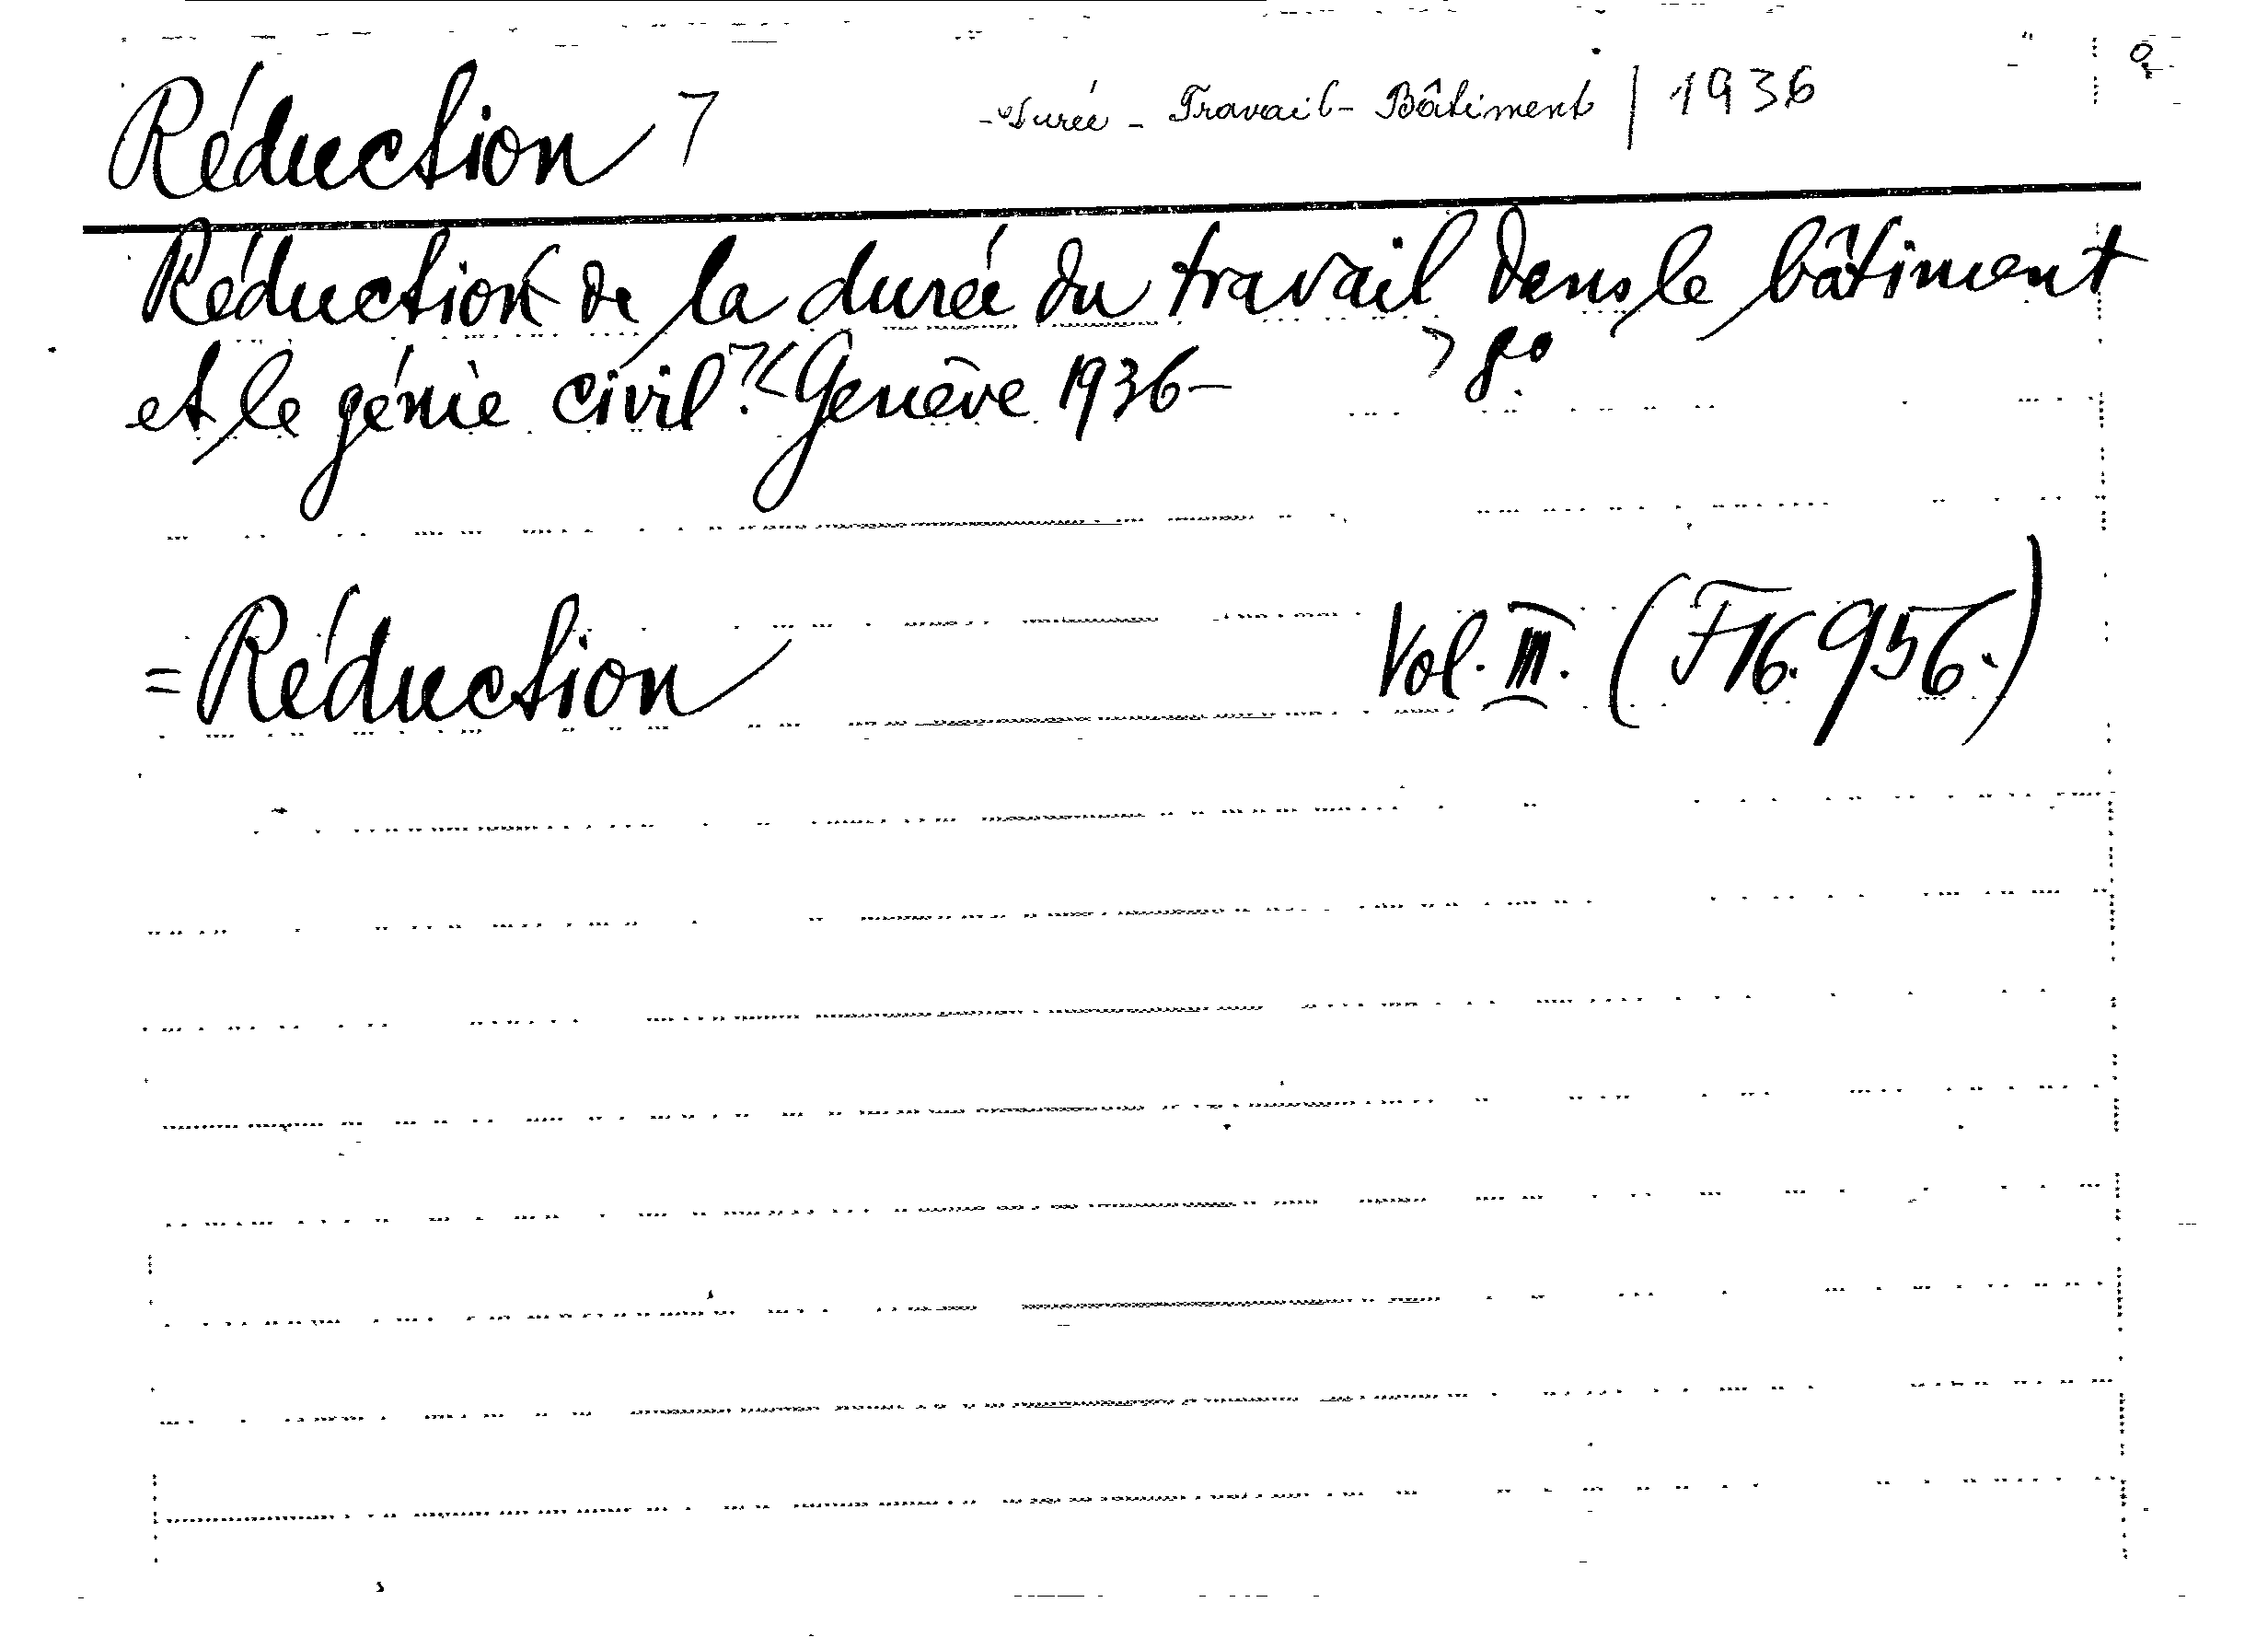 Réduction 7 - Durée - Travail - Bâtiment / 1936
Réduction de la durée du travail dans le bâtiment
et le génie civil. Genève 1936 - 8o
= Réduction Vol. III. (F16.956.)